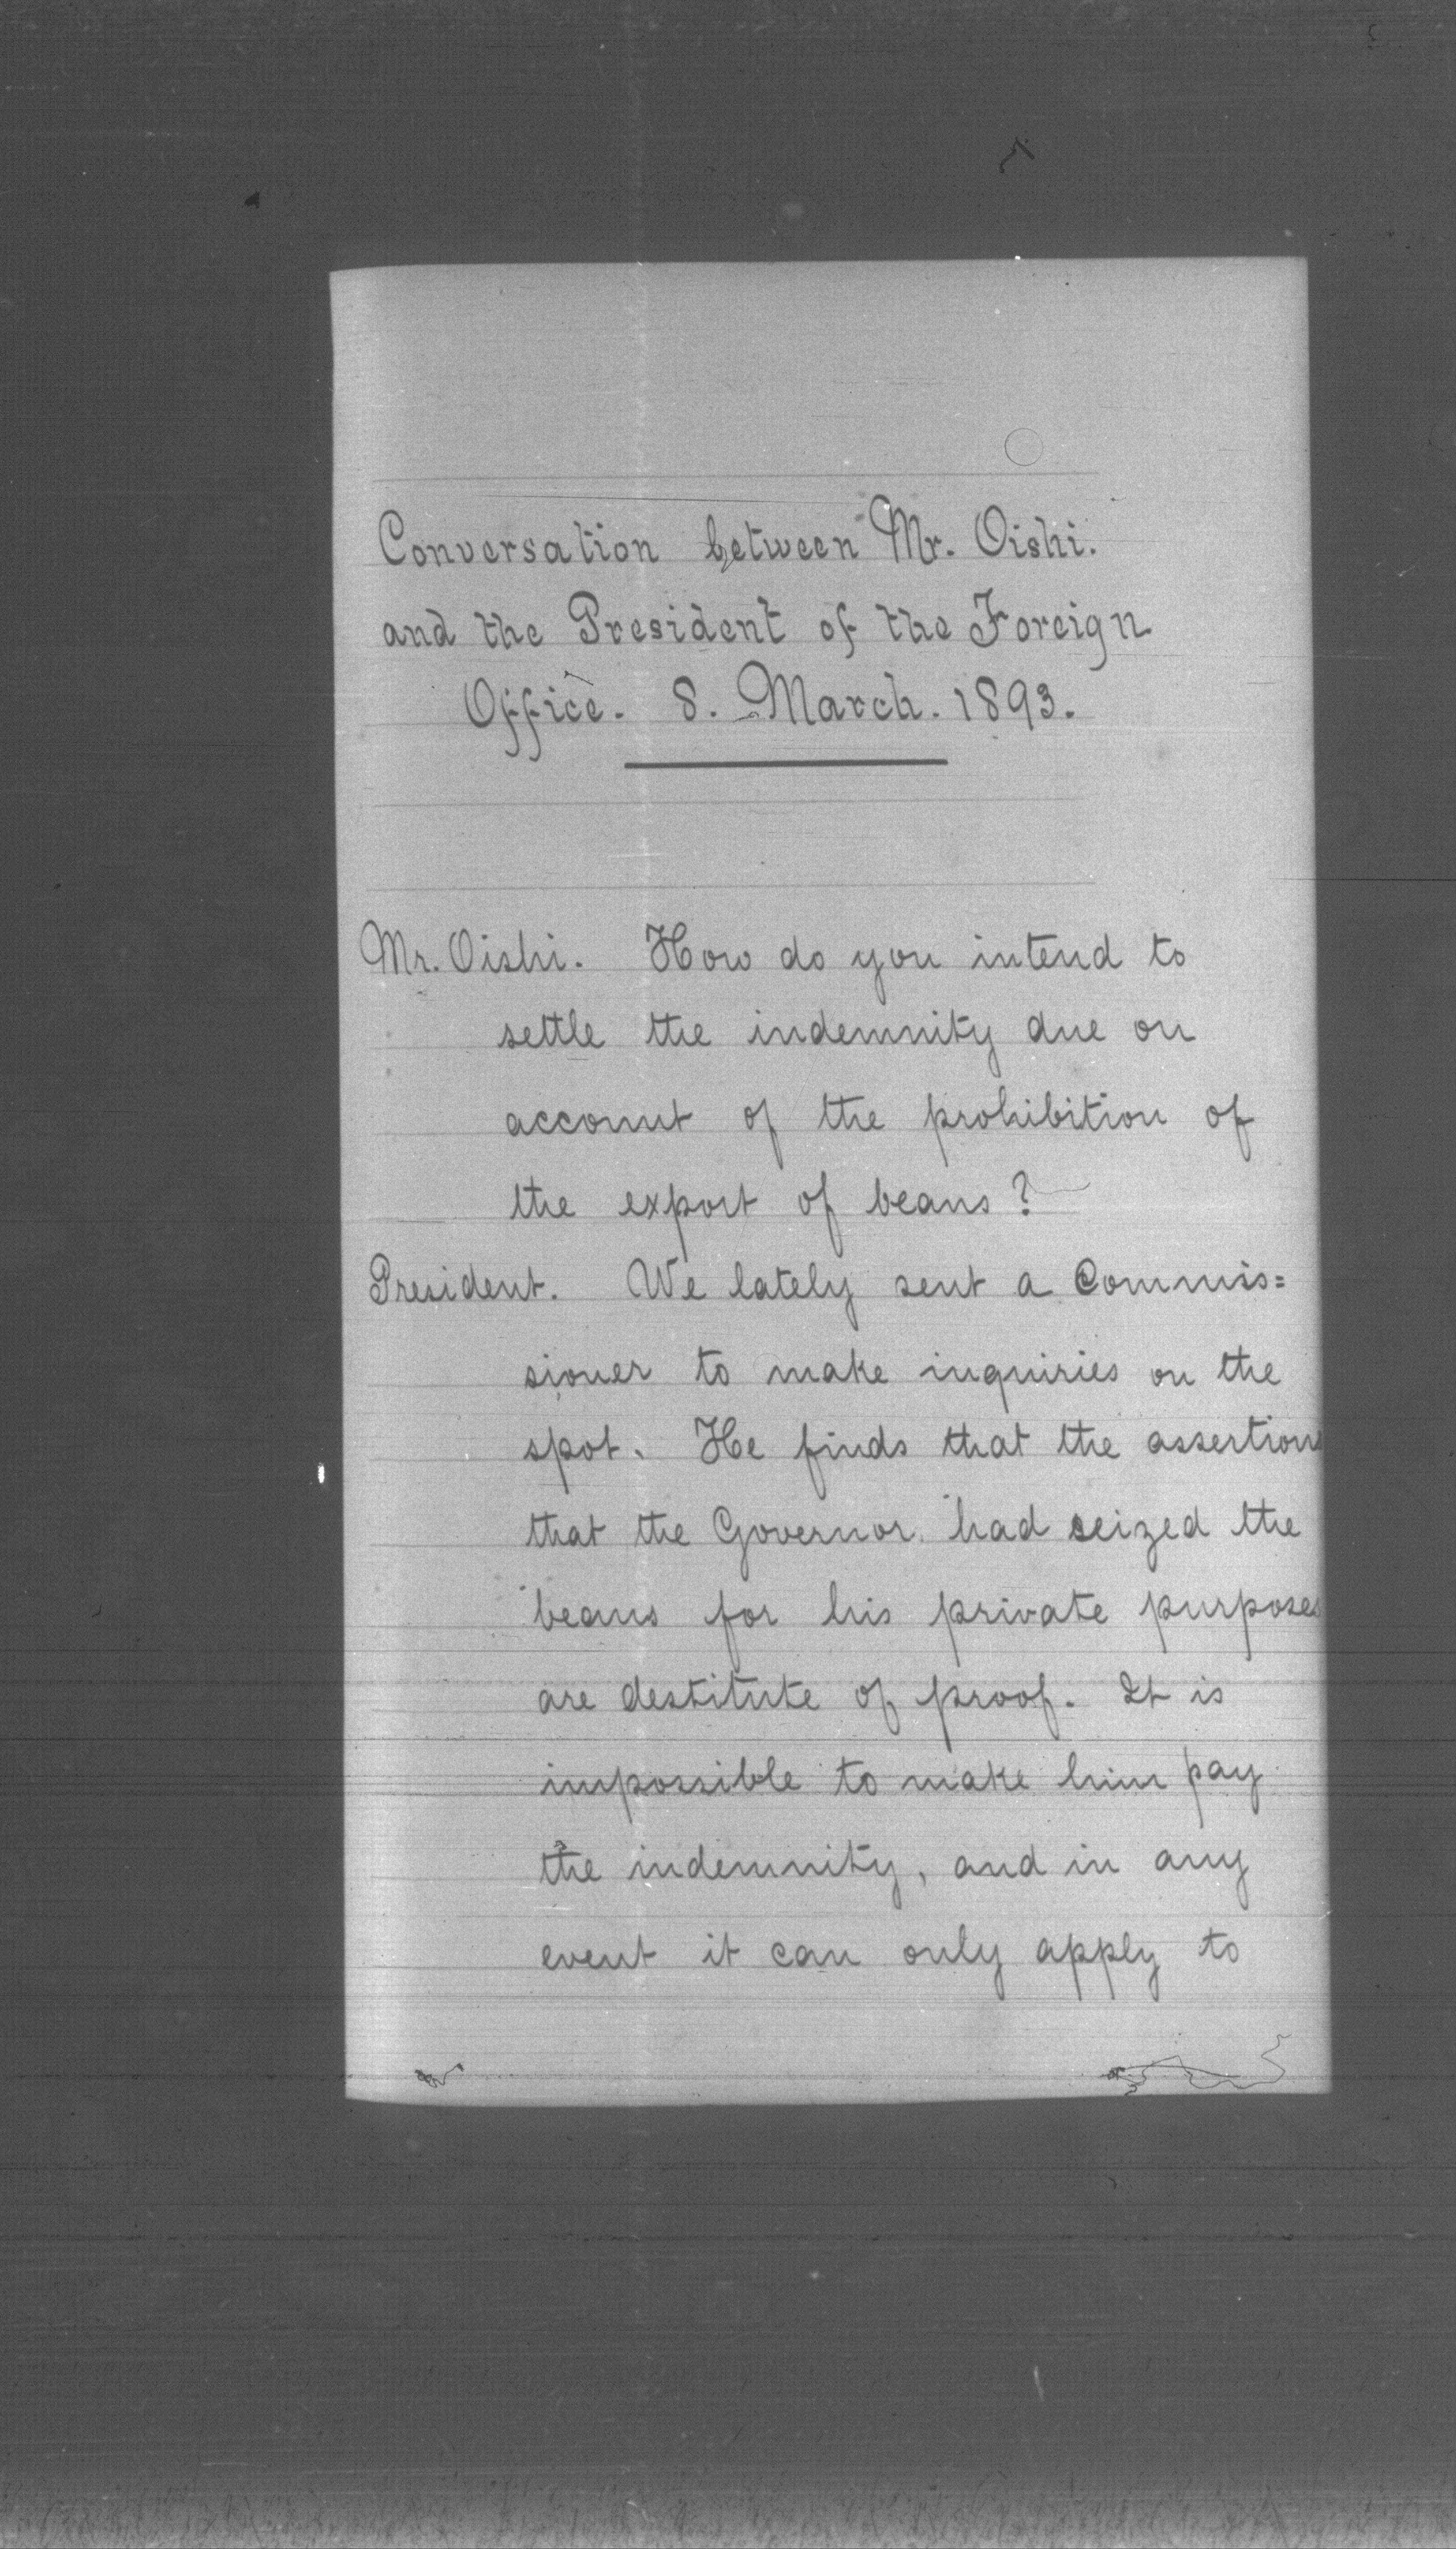 Conversation between Mr. Oishi.
and the President of the Foreign
Office. 8. March. 1893.
Mr. Oishi. How do you intend to
settle the indemnity due on
account of the prohibition of
the export of beans?
President. We lately sent a Commis=
sioner to make inquiries on the
spot. He finds that the assertions
that the Governor had seized the
beans for his private purposes
are destitute of proof. It is
impossible to make him pay
the indemnity, and in any
event it can only apply to